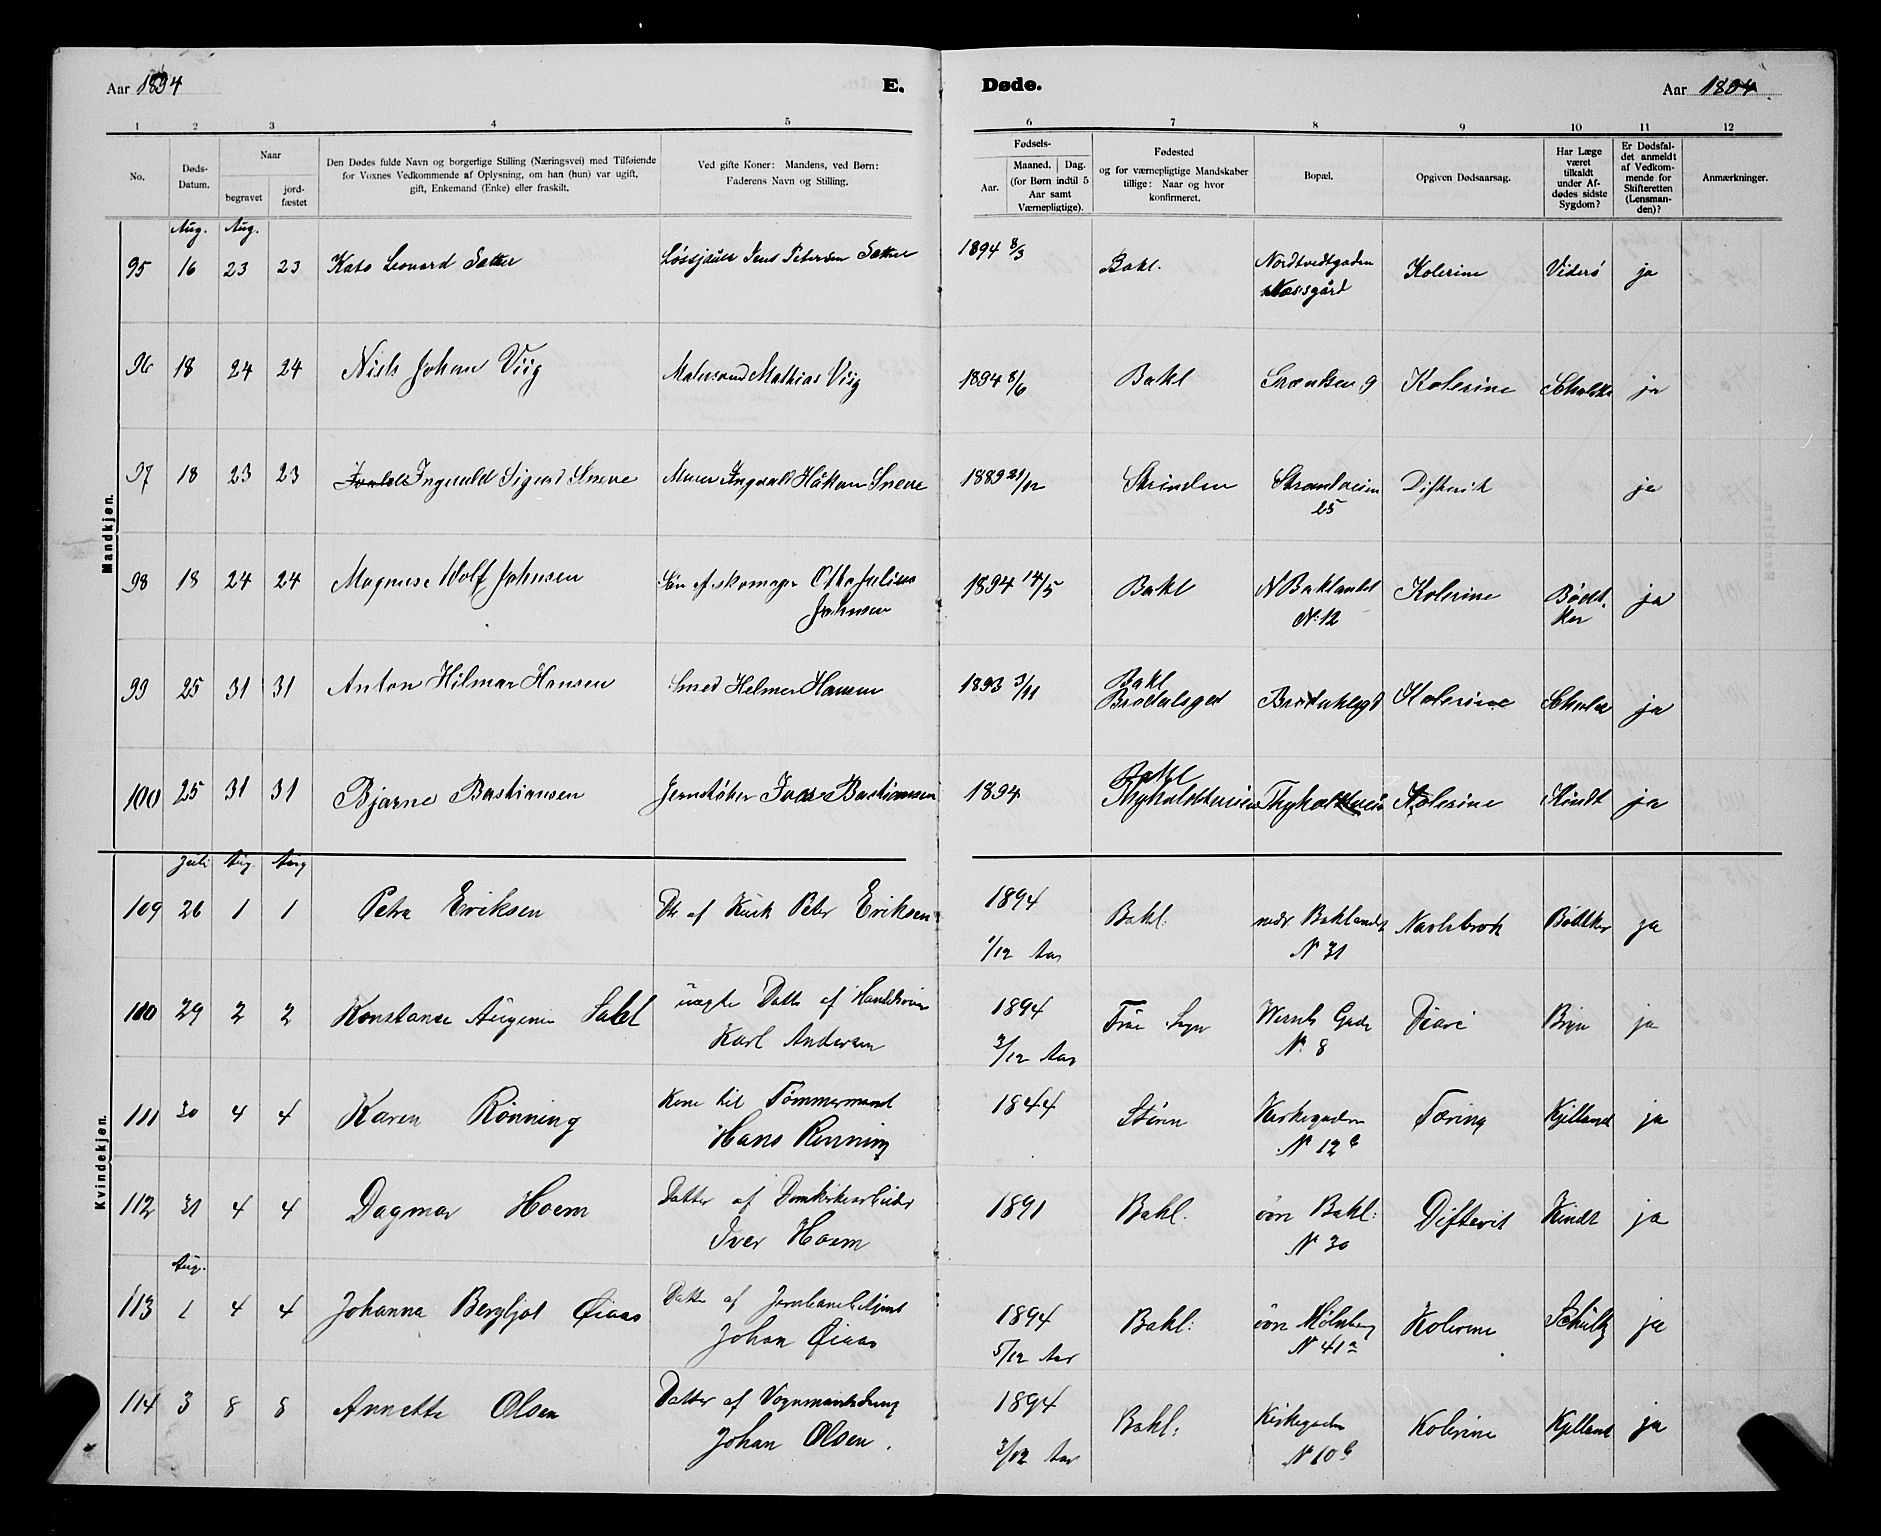 Aar 1894
E.
Døde.
Aar 1894.
1 2 3 4 5 6 7 8 9 10 11 12
No.
Døds-
Datum.
Naar
begravet
jord-
fæstet
Den Dødes fulde Navn og borgerlige Stilling (Næringsvei) med Tilføiende
for Voxnes Vedkommende af Oplysning, om han (hun) var ugift,
gift, Enkemand (Enke) eller fraskilt.
Ved gifte Koner: Mandens, ved Børn:
Faderens Navn og Stilling.
Fødsels-
Aar.
Maaned. Dag.
(for Børn indtil 5
Aar samt
Værnepligtige).
Fødested
og for værnepligtige Mandskaber
tillige: Naar og hvor
konfirmeret.
Bopæl.
Opgiven Dødsaarsag.
Har Læge
været
tilkaldt
under Af-
dødes sidste
Sygdom?
Er Dødsfal-
det anmeldt
af Vedkom-
mende for
Skifteretten
(Lensman-
den)?
Anmærkninger.
Mandkjøn.
Aug. Aug.
95 16 23 23 Kato Leonard Sather Jens Petersen Sather 1894 8/3 Bakl. Nordtvedtgaden Kolerine Viderö ja
Næssgård
96 18 24 24 Nils Johan Viig Malersvend Mathias Viig 1894 8/6 Bakl Grænsen 9 Kolerine ja
97 18 23 23 Ingvald Sigurd Sneve Murer Ingvald Håkon Sneve 1889 21/12 Strinden Strandveien Difterit ja
25
98 18 24 24 Magnus Adolf Johnsen Søn af skomager Otto Julius 1894 14/5 Bakl N Baklandet Kolerine Bødt- ja
Johnsen N: 12 ker
99 25 31 31 Anton Hilmar Hansen Smed Helmer Hansen 1893 3/11 Bakl Kolerine ja
100 25 31 31 Bjarne Bastiansen Ivar Bastiansen 1894 Bakl Kolerine Kindt ja
Kvindekjøn.
Juli Aug. Aug
109 26 1 1 Petra Eriksen Dtr af Kusk Peter Eriksen 1894 Bakl: nedr. Baklandet Navlebrok Bødtker ja
1/12 Aar N 31
110 29 2 2 Konstanse uægte Datter af 1894 Sogn Gade Bryn ja
Karl Andersen 2/12 Aar N. 8
111 30 4 4 Karen Rönning Kone til Tömmermand 1844 Stören Kirkegaden Tæring Kjelland ja
Hans Rönning N 12 b
112 31 4 4 Dagmar Hoem Datter af 1891 Bakl. övre Bakl: Difterit Kindt ja
Iver Hoem N 30
Aug.
113 1 4 4 Johanna Bergljot Öiaas Datter af 1894 Bakl: övre Mölnberg Kolerine Schultz ja
Johan Öiaas 5/12 Aar N 41 a
114 3 8 8 Annette Olsen Datter af Vognmandsdreng 1894 Bakl: Kirkegaden Kolerine Kjelland ja
Johan Olsen. 3/12 Aar N 10 b